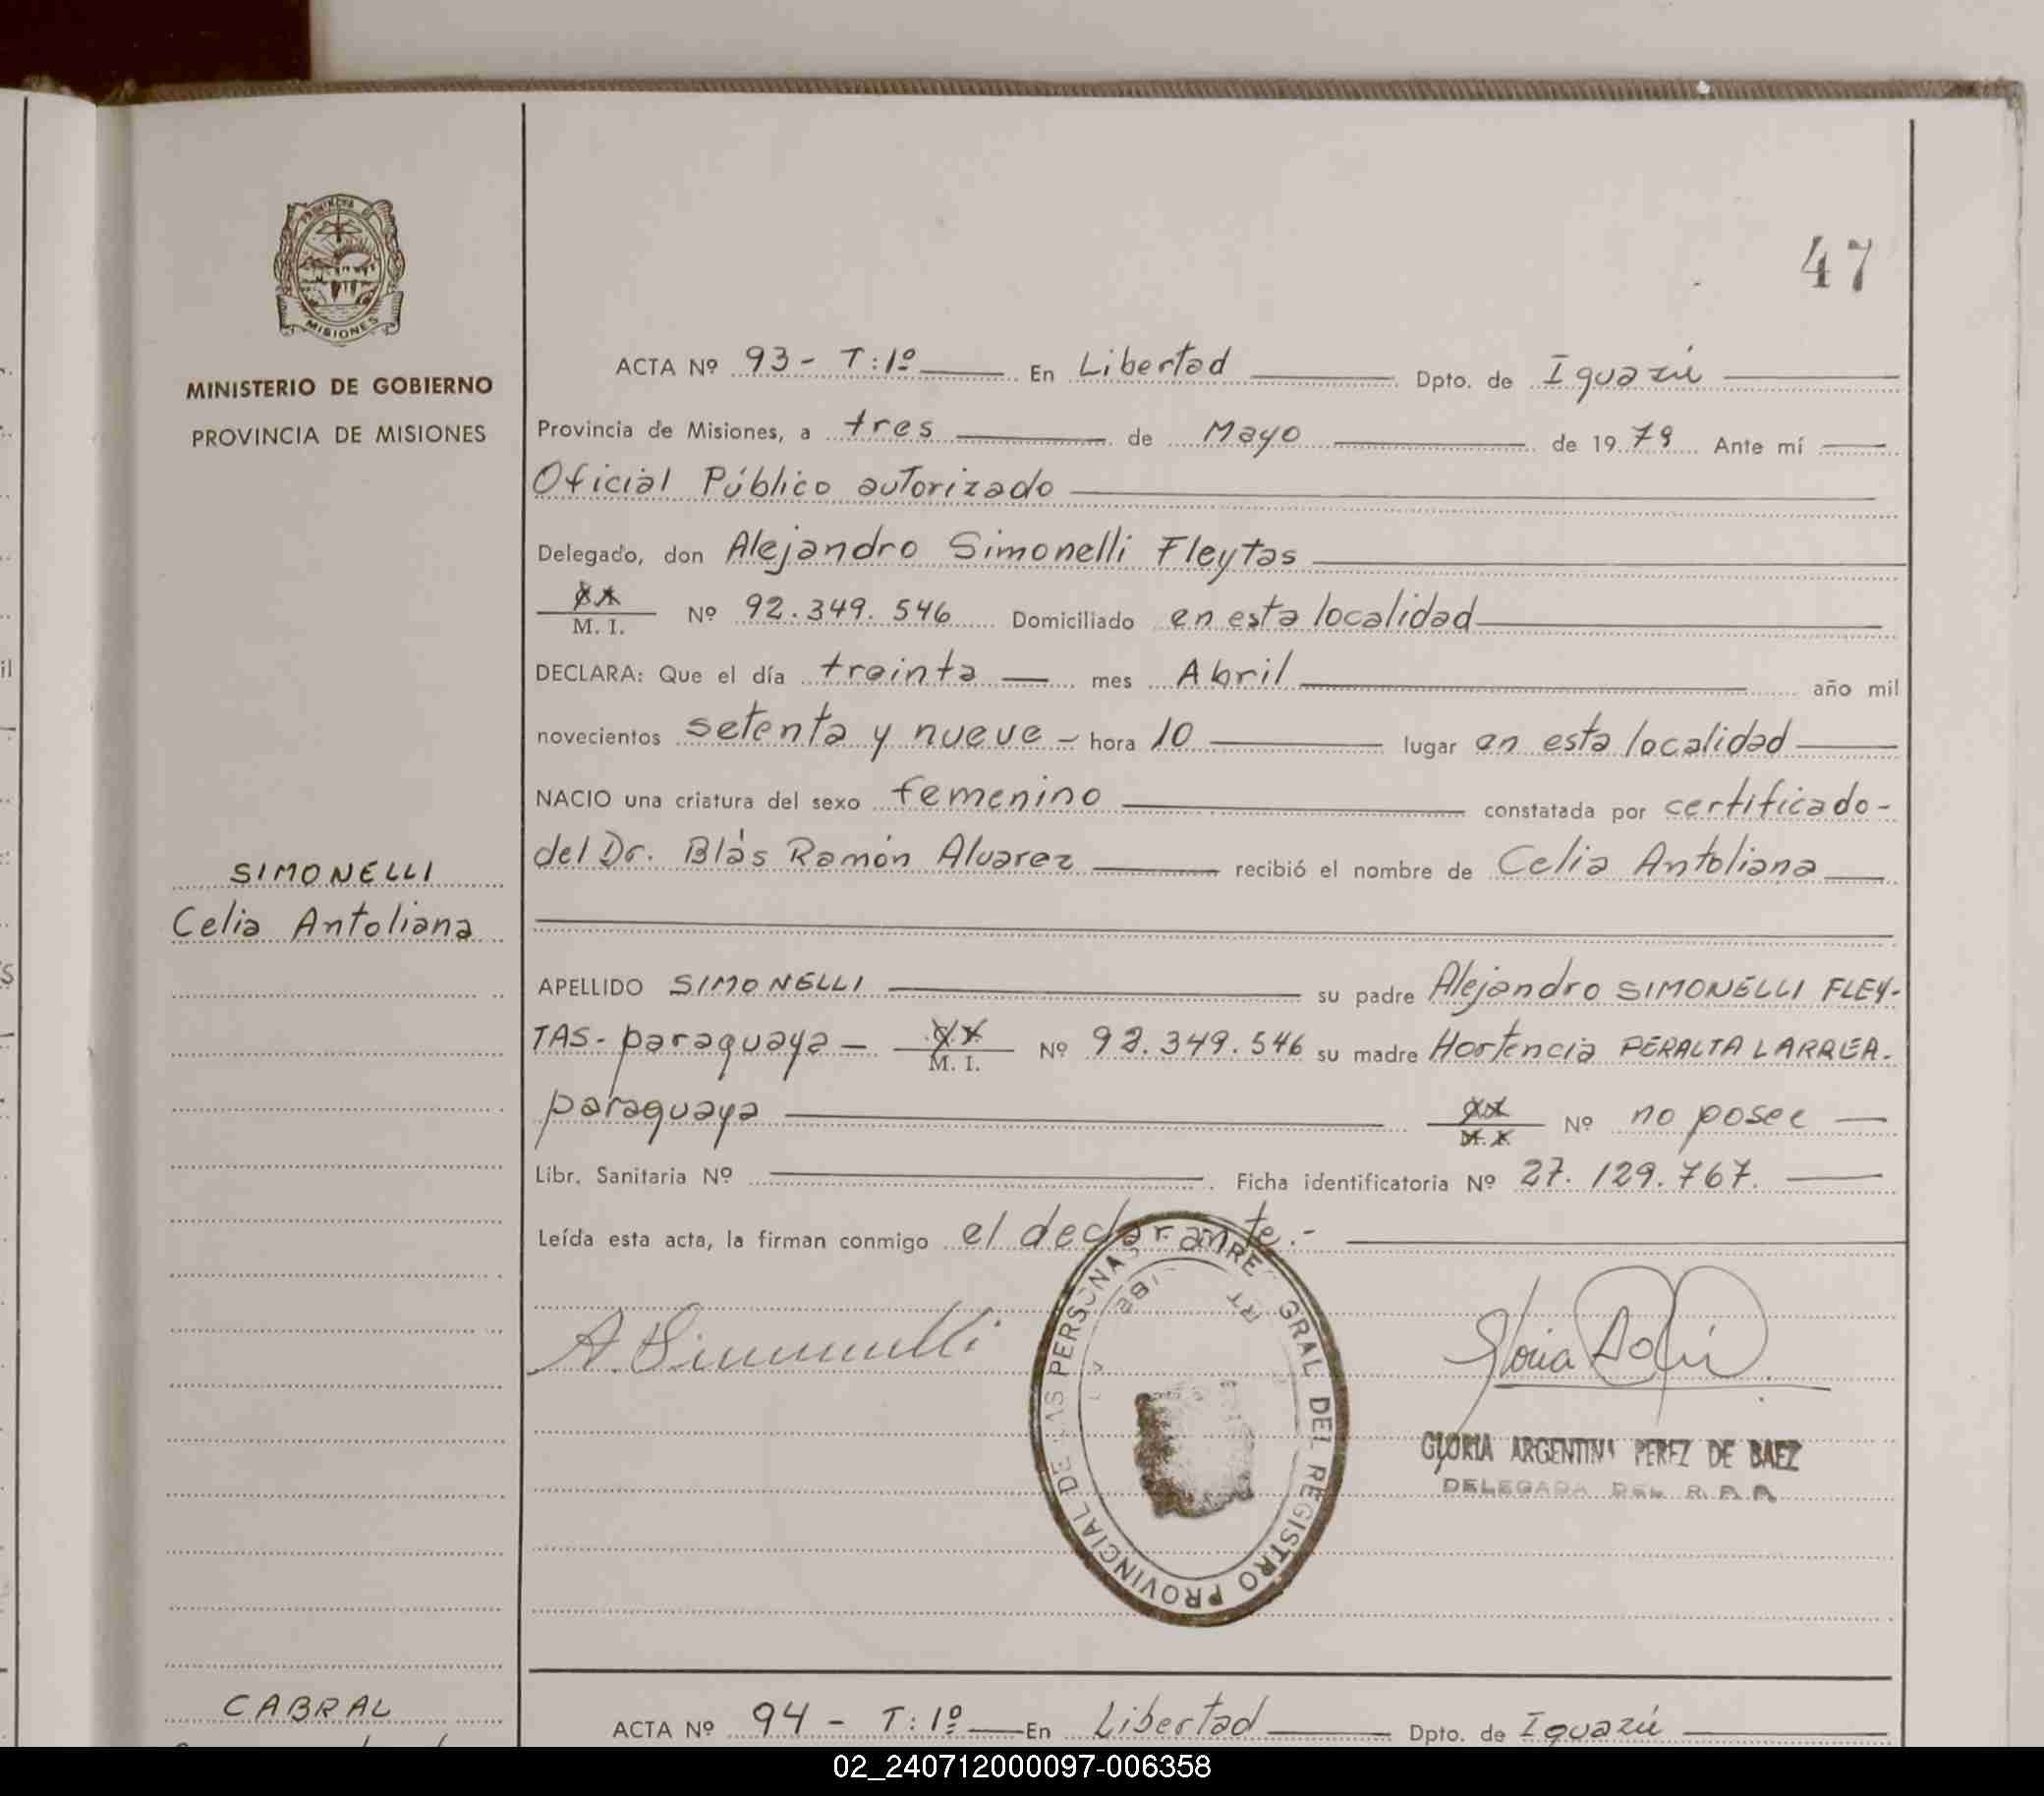 47
MINISTERIO DE GOBIERNO
PROVINCIA DE MISIONES
MISIONES
SIMONELLI
Celia Antoliana
ACTA Nº 93 - T:1º En Libertad Dpto. de Iguazú
Provincia de Misiones, a tres de Mayo de 1979 Ante mí
Oficial Público autorizado
Delegado, don Alejandro Simonelli Fleytas
M. I. Nº 92.349.546 Domiciliado en esta localidad
DECLARA: Que el día treinta mes Abril año mil
novecientos setenta y nueve - hora 10 lugar en esta localidad
NACIO una criatura del sexo femenino constatada por certificado-
del Dr. Blás Ramón Alvarez recibió el nombre de Celia Antoliana
APELLIDO SIMONELLI su padre Alejandro SIMONELLI FLEY-
TAS- paraguaya - M. I. Nº 92.349.546 su madre Hortencia PERALTA LARREA.
paraguaya Nº no posee
Libr. Sanitaria Nº Ficha identificatoria Nº 27.129.767.
Leída esta acta, la firman conmigo el declarante.-
A. Simonelli
GRAL DEL REGISTRO PROVINCIAL DE LAS PERSONAS
Gloria
GLORIA ARGENTINA PEREZ DE BAEZ
DELEGADA DEL R.P.P.
CABRAL
ACTA Nº 94 - T:1º En Libertad Dpto. de Iguazú
02_240712000097-006358